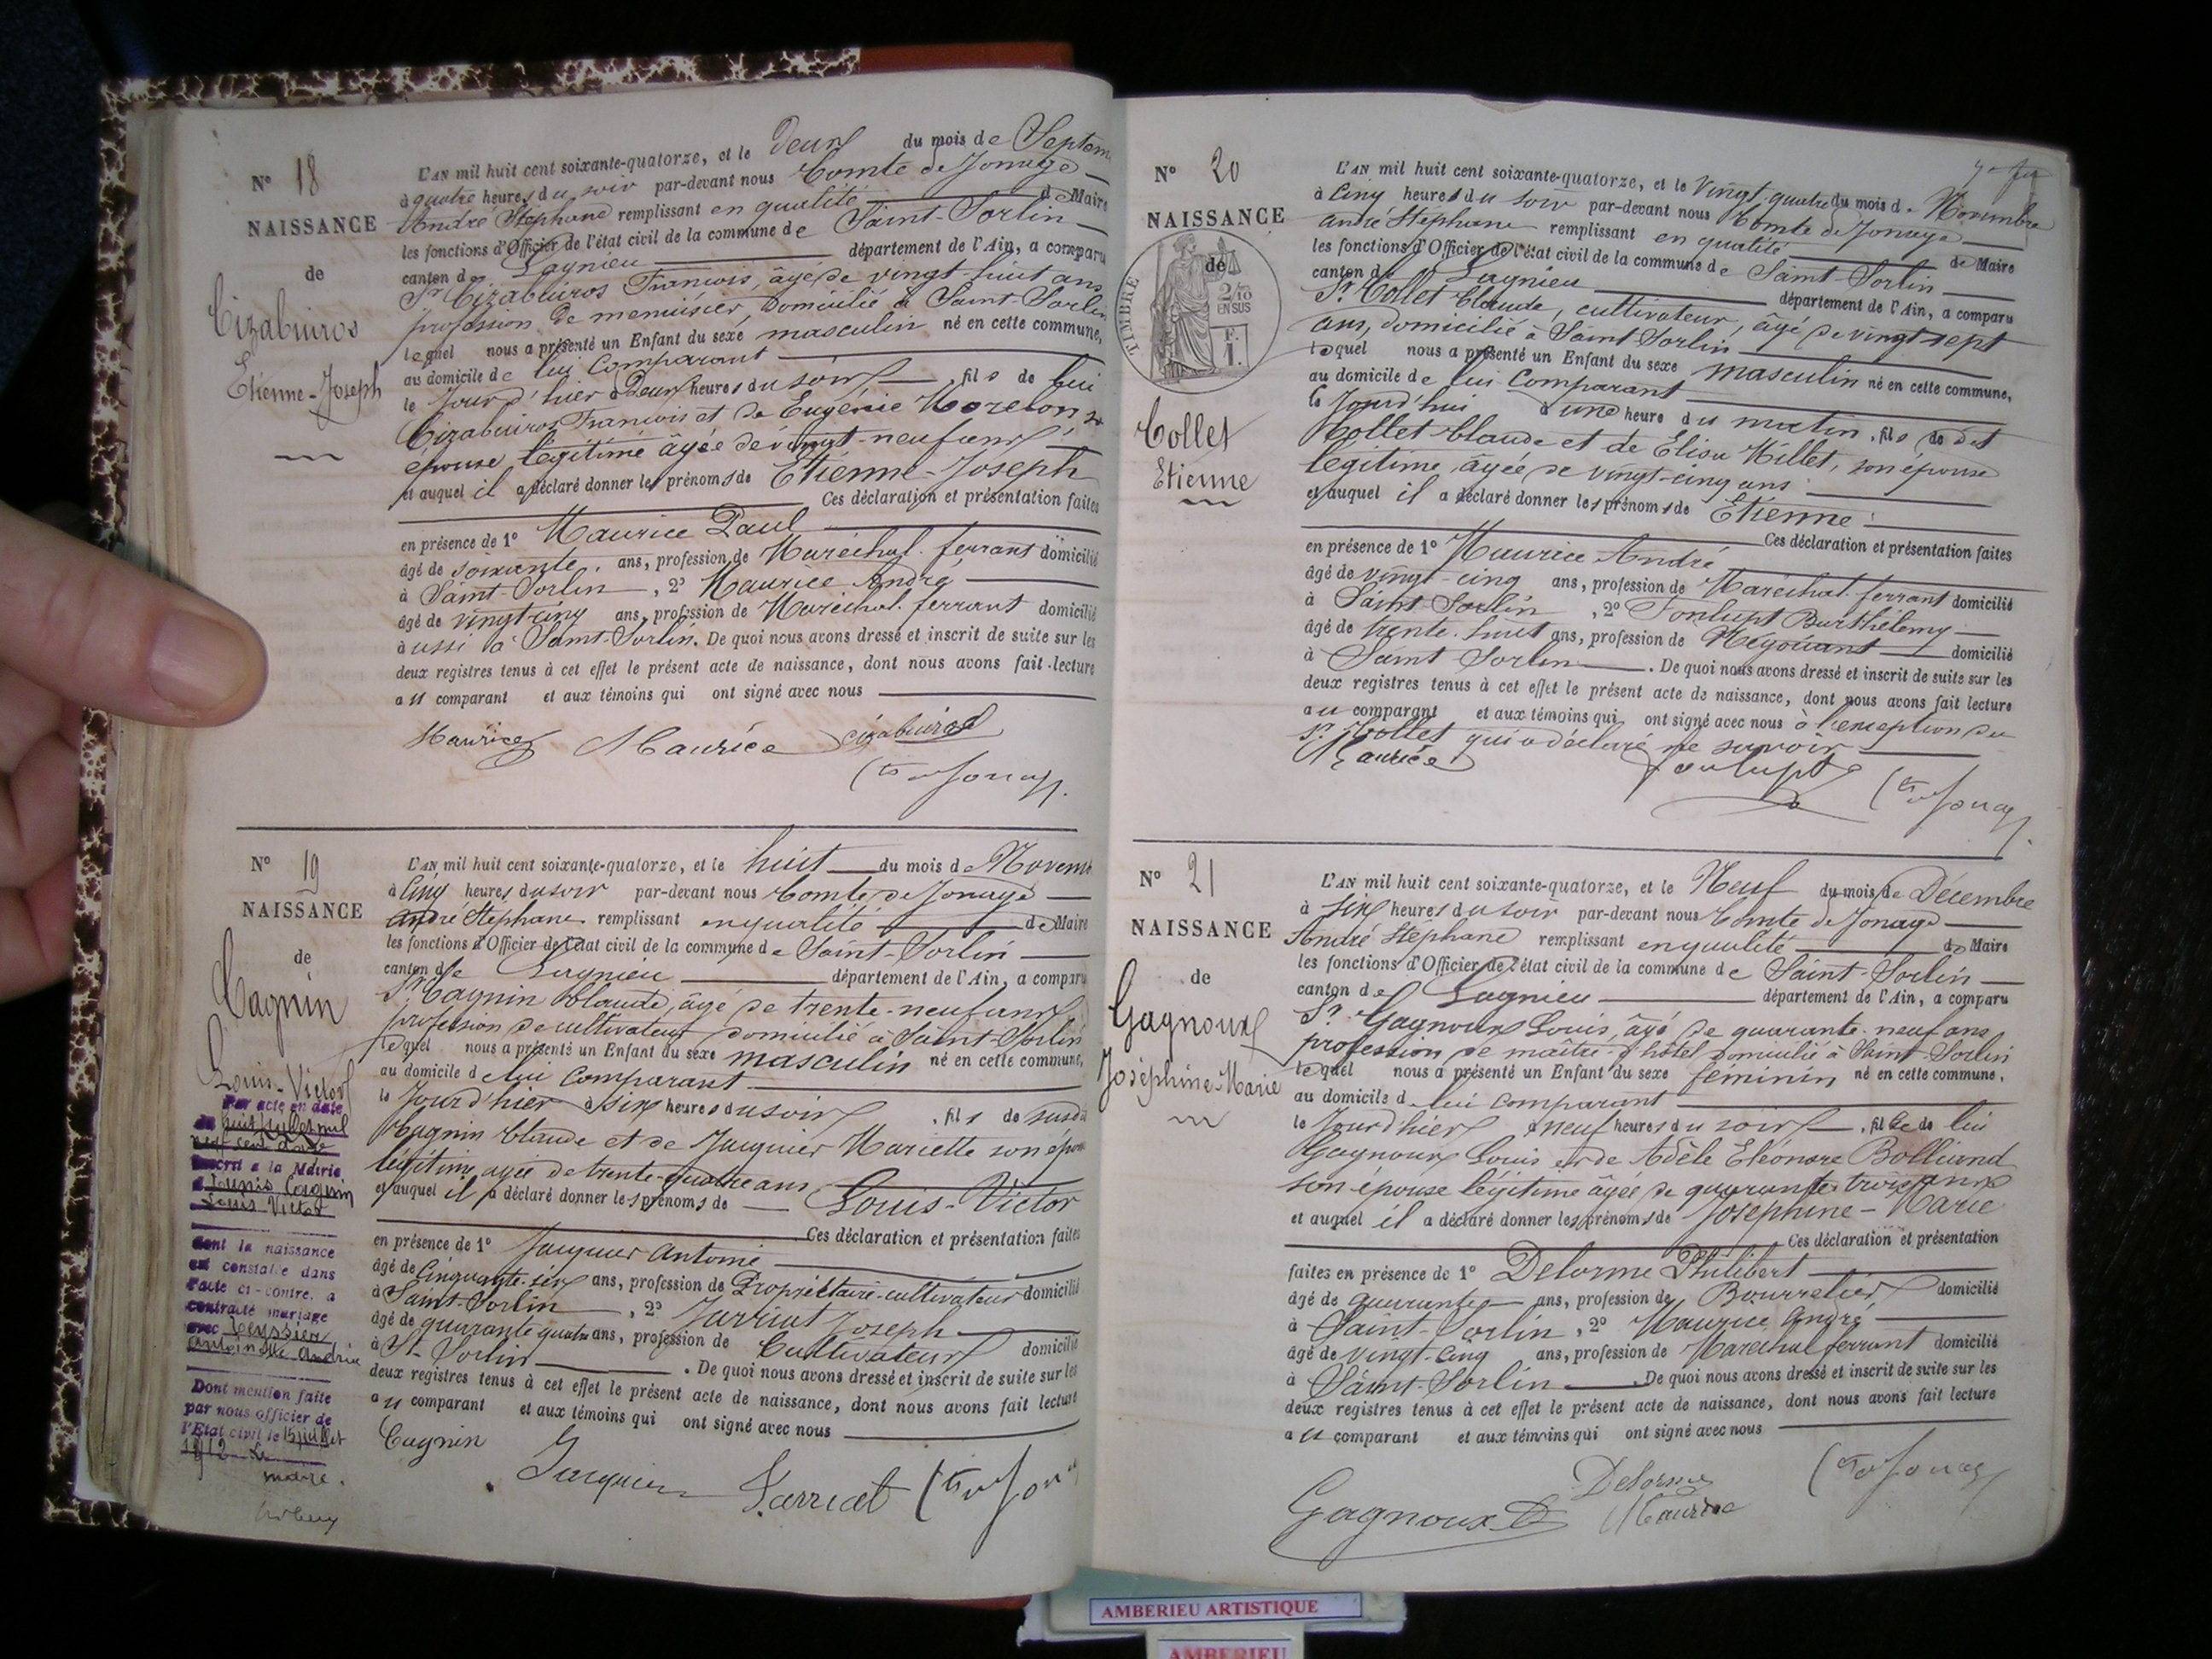 N° 18
NAISSANCE
de
Cizabuiros
Etienne-Joseph
L'AN mil huit cent soixante-quatorze, et le deux du mois de Septem
à quatre heures du soir par-devant nous Comte de Jonage
André Stéphane remplissant en qualité de Maire
les fonctions d'Officier de l'état civil de la commune de Saint-Sorlin
canton de Lagnieu département de l'Ain, a comparu
Sr Cizabuiros Francois, âgé de vingt-huit ans,
profession de menuisier, domicilié à Saint-Sorlin
lequel nous a présenté un Enfant du sexe masculin né en cette commune,
au domicile de lui comparant
le jour d'hier à deux heures du soir, fils de lui
Cizabuiros Francois et de Eugénie Morelon sa
épouse légitime âgée de vingt-neuf ans
et auquel il a déclaré donner les prénoms de Etienne-Joseph
Ces déclaration et présentation faites
en présence de 1° Maurice Paul
âgé de soixante ans, profession de Maréchal-ferrant domicilié
à Saint-Sorlin, 2° Maurice André
âgé de vingt-cinq ans, profession de Maréchal-ferrant domicilié
aussi à Saint-Sorlin. De quoi nous avons dressé et inscrit de suite sur les
deux registres tenus à cet effet le présent acte de naissance, dont nous avons fait lecture
au comparant et aux témoins qui ont signé avec nous
Maurice Maurice Cizabuiros
Cte de Jonage
N° 19
NAISSANCE
de
Cagnin
Louis-Victor
Par acte en date
du huit juillet mil
neuf cent douze
inscrit a la Mairie
Cagnin
Louis Victor
dont la naissance
est constatée dans
l'acte ci-contre, a
contracté mariage
avec Teyssier
Antoinette Andrée
Dont mention faite
par nous officier de
l'Etat civil le 15 juillet
1912 Le
maire.
L'AN mil huit cent soixante-quatorze, et le huit du mois de Novemb
à cinq heures du soir par-devant nous Comte de Jonage
André Stéphane remplissant en qualité de Maire
les fonctions d'Officier de l'état civil de la commune de Saint-Sorlin
canton de Lagnieu département de l'Ain, a comparu
Sr Cagnin Claude, âgé de trente-neuf ans,
profession de cultivateur domicilié à Saint-Sorlin
lequel nous a présenté un Enfant du sexe masculin né en cette commune,
au domicile de lui comparant
le jour d'hier à six heures du soir, fils de susdit
Cagnin Claude et de Jacquier Mariette son épouse
légitime, agée de trente-quatre ans
et auquel il a déclaré donner les prénoms de Louis-Victor
Ces déclaration et présentation faites
en présence de 1° Jacquier Antoine
âgé de cinquante-six ans, profession de Propriétaire-cultivateur domicilié
à Saint-Sorlin, 2° Jarriat Joseph
âgé de quarante quatre ans, profession de Cultivateur domicilié
à St-Sorlin. De quoi nous avons dressé et inscrit de suite sur les
deux registres tenus à cet effet le présent acte de naissance, dont nous avons fait lecture
au comparant et aux témoins qui ont signé avec nous
Cagnin Jacquier Jarriat Cte de Jon
N° 20
NAISSANCE
de
TIMBRE
2/10
EN SUS
F.
1.
Collet
Etienne
L'AN mil huit cent soixante-quatorze, et le vingt-quatre du mois de Novembre
à cinq heures du soir par-devant nous Comte de Jonage
André Stéphane remplissant en qualité de Maire
les fonctions d'Officier de l'état civil de la commune de Saint-Sorlin
canton de Lagnieu département de l'Ain, a comparu
Sr Collet Claude, cultivateur, âgé de vingt-sept
ans, domicilié à Saint-Sorlin
lequel nous a présenté un Enfant du sexe masculin né en cette commune,
au domicile de lui comparant
le jourd'hui à une heure du matin, fils de dit
Collet Claude et de Elisa Millet, son épouse
légitime, âgée de vingt-cinq ans
et auquel il a déclaré donner les prénoms de Etienne
Ces déclaration et présentation faites
en présence de 1° Maurice André
âgé de vingt-cinq ans, profession de Maréchal-ferrant domicilié
à Saint Sorlin, 2° Fonlupt Barthélemy
âgé de trente-huit ans, profession de Négociant domicilié
à Saint Sorlin. De quoi nous avons dressé et inscrit de suite sur les
deux registres tenus à cet effet le présent acte de naissance, dont nous avons fait lecture
au comparant et aux témoins qui ont signé avec nous à l'exception du
sr Collet qui a déclaré ne savoir
Maurice Fonlupt Cte de Jonage
N° 21
NAISSANCE
de
Gagnoux
Joséphine-Marie
L'AN mil huit cent soixante-quatorze, et le Neuf du mois de Décembre
à six heures du soir par-devant nous Comte de Jonage
André Stéphane remplissant en qualité de Maire
les fonctions d'Officier de l'état civil de la commune de Saint-Sorlin
canton de Lagnieu département de l'Ain, a comparu
Sr Gagnoux Louis, âgé de quarante-neuf ans
profession de maître-d'hôtel domicilié à Saint-Sorlin
lequel nous a présenté un Enfant du sexe féminin né en cette commune,
au domicile de lui comparant
le jourd'hier à neuf heures du soir, fille de lui
Gagnoux Louis et de Adèle Eléonore Bolliand
son épouse légitime âgée de quarante-trois ans
et auquel il a déclaré donner les prénoms de Joséphine-Marie
Ces déclaration et présentation
faites en présence de 1° Delorme Philibert
âgé de quarante ans, profession de Bourrelier domicilié
à Saint-Sorlin, 2° Maurice André
âgé de vingt-cinq ans, profession de Maréchal ferrant domicilié
à Saint-Sorlin. De quoi nous avons dressé et inscrit de suite sur les
deux registres tenus à cet effet le présent acte de naissance, dont nous avons fait lecture
au comparant et aux témoins qui ont signé avec nous
Gagnoux Delorme Maurice Cte de Jonage
AMBERIEU ARTISTIQUE
AMBERIEU